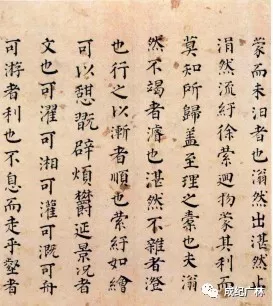 蒙而未汨者也滃然出湛然
涓然流紆徐縈迴物蒙其利而
莫知所歸蓋至理之素也夫滃
然不竭者濬也湛然不雜者澄
也行之以漸者順也縈紆如繪
可以憇翫辟煩欝延景况者
文也可濯可湘可灌可溉可舟
可游者利也不息而走乎壑者
成纪广林